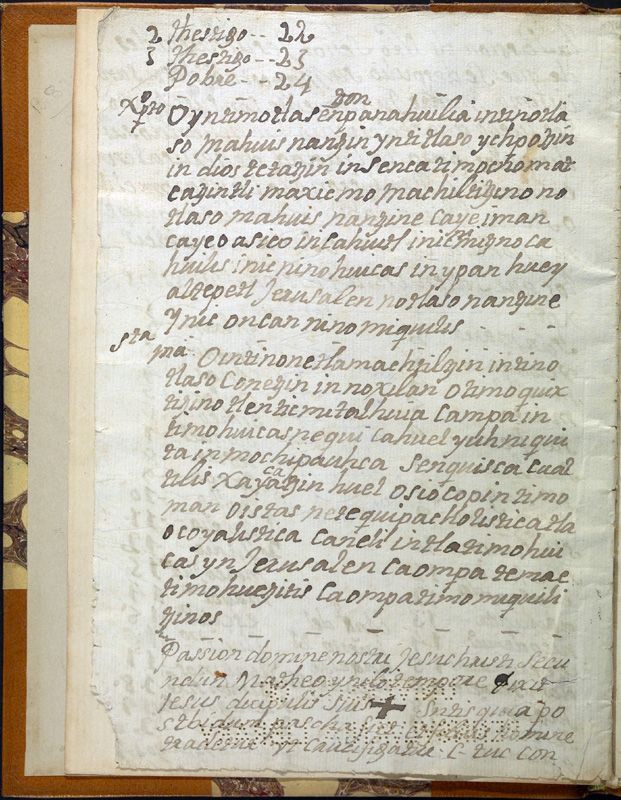 2 Thestigo -- 22
3 Thestigo -- 23
Pobre --- 24
Xpto O yntimotlasenpanahuilia intinotla
don
so mahuis nantzin yntitlaso ychpotzin
in dios tetatzin in senca timo
catzintli maxicmo machiltitzino no
tlaso mahuis nantzine caye iman
caye oasico in cahuitl inic niyno ca
huilis inic nino huicas in ypan huey
altepetl Jerusalen notlaso nantzine
ynic oncan nino miquilis
Sta
ma Ointinonetlamachtiltzin intino
tlaso Conetzin in noxilan otimoquix
titzino tlen ticmitalhuia campa in
timohuicasnequi cahuel yuhniqui
ta in mochipauhca senquisca cual
tilis xayacatzin huel osiocopintimo
man
ocoyalistica canel intlatimohui
cas yn Jerusalen caompa temac
timohuetzitis caompatimo miquili
tzinos
Passion domine nostri Jesuchristi Secu
ndun Matheo yn illo tempore Dixit
Jesus dicipulis suis + Sntis quia po
st bidum pascha fiet et filius homine
tradetur vt Crucifigatur. C tuc con